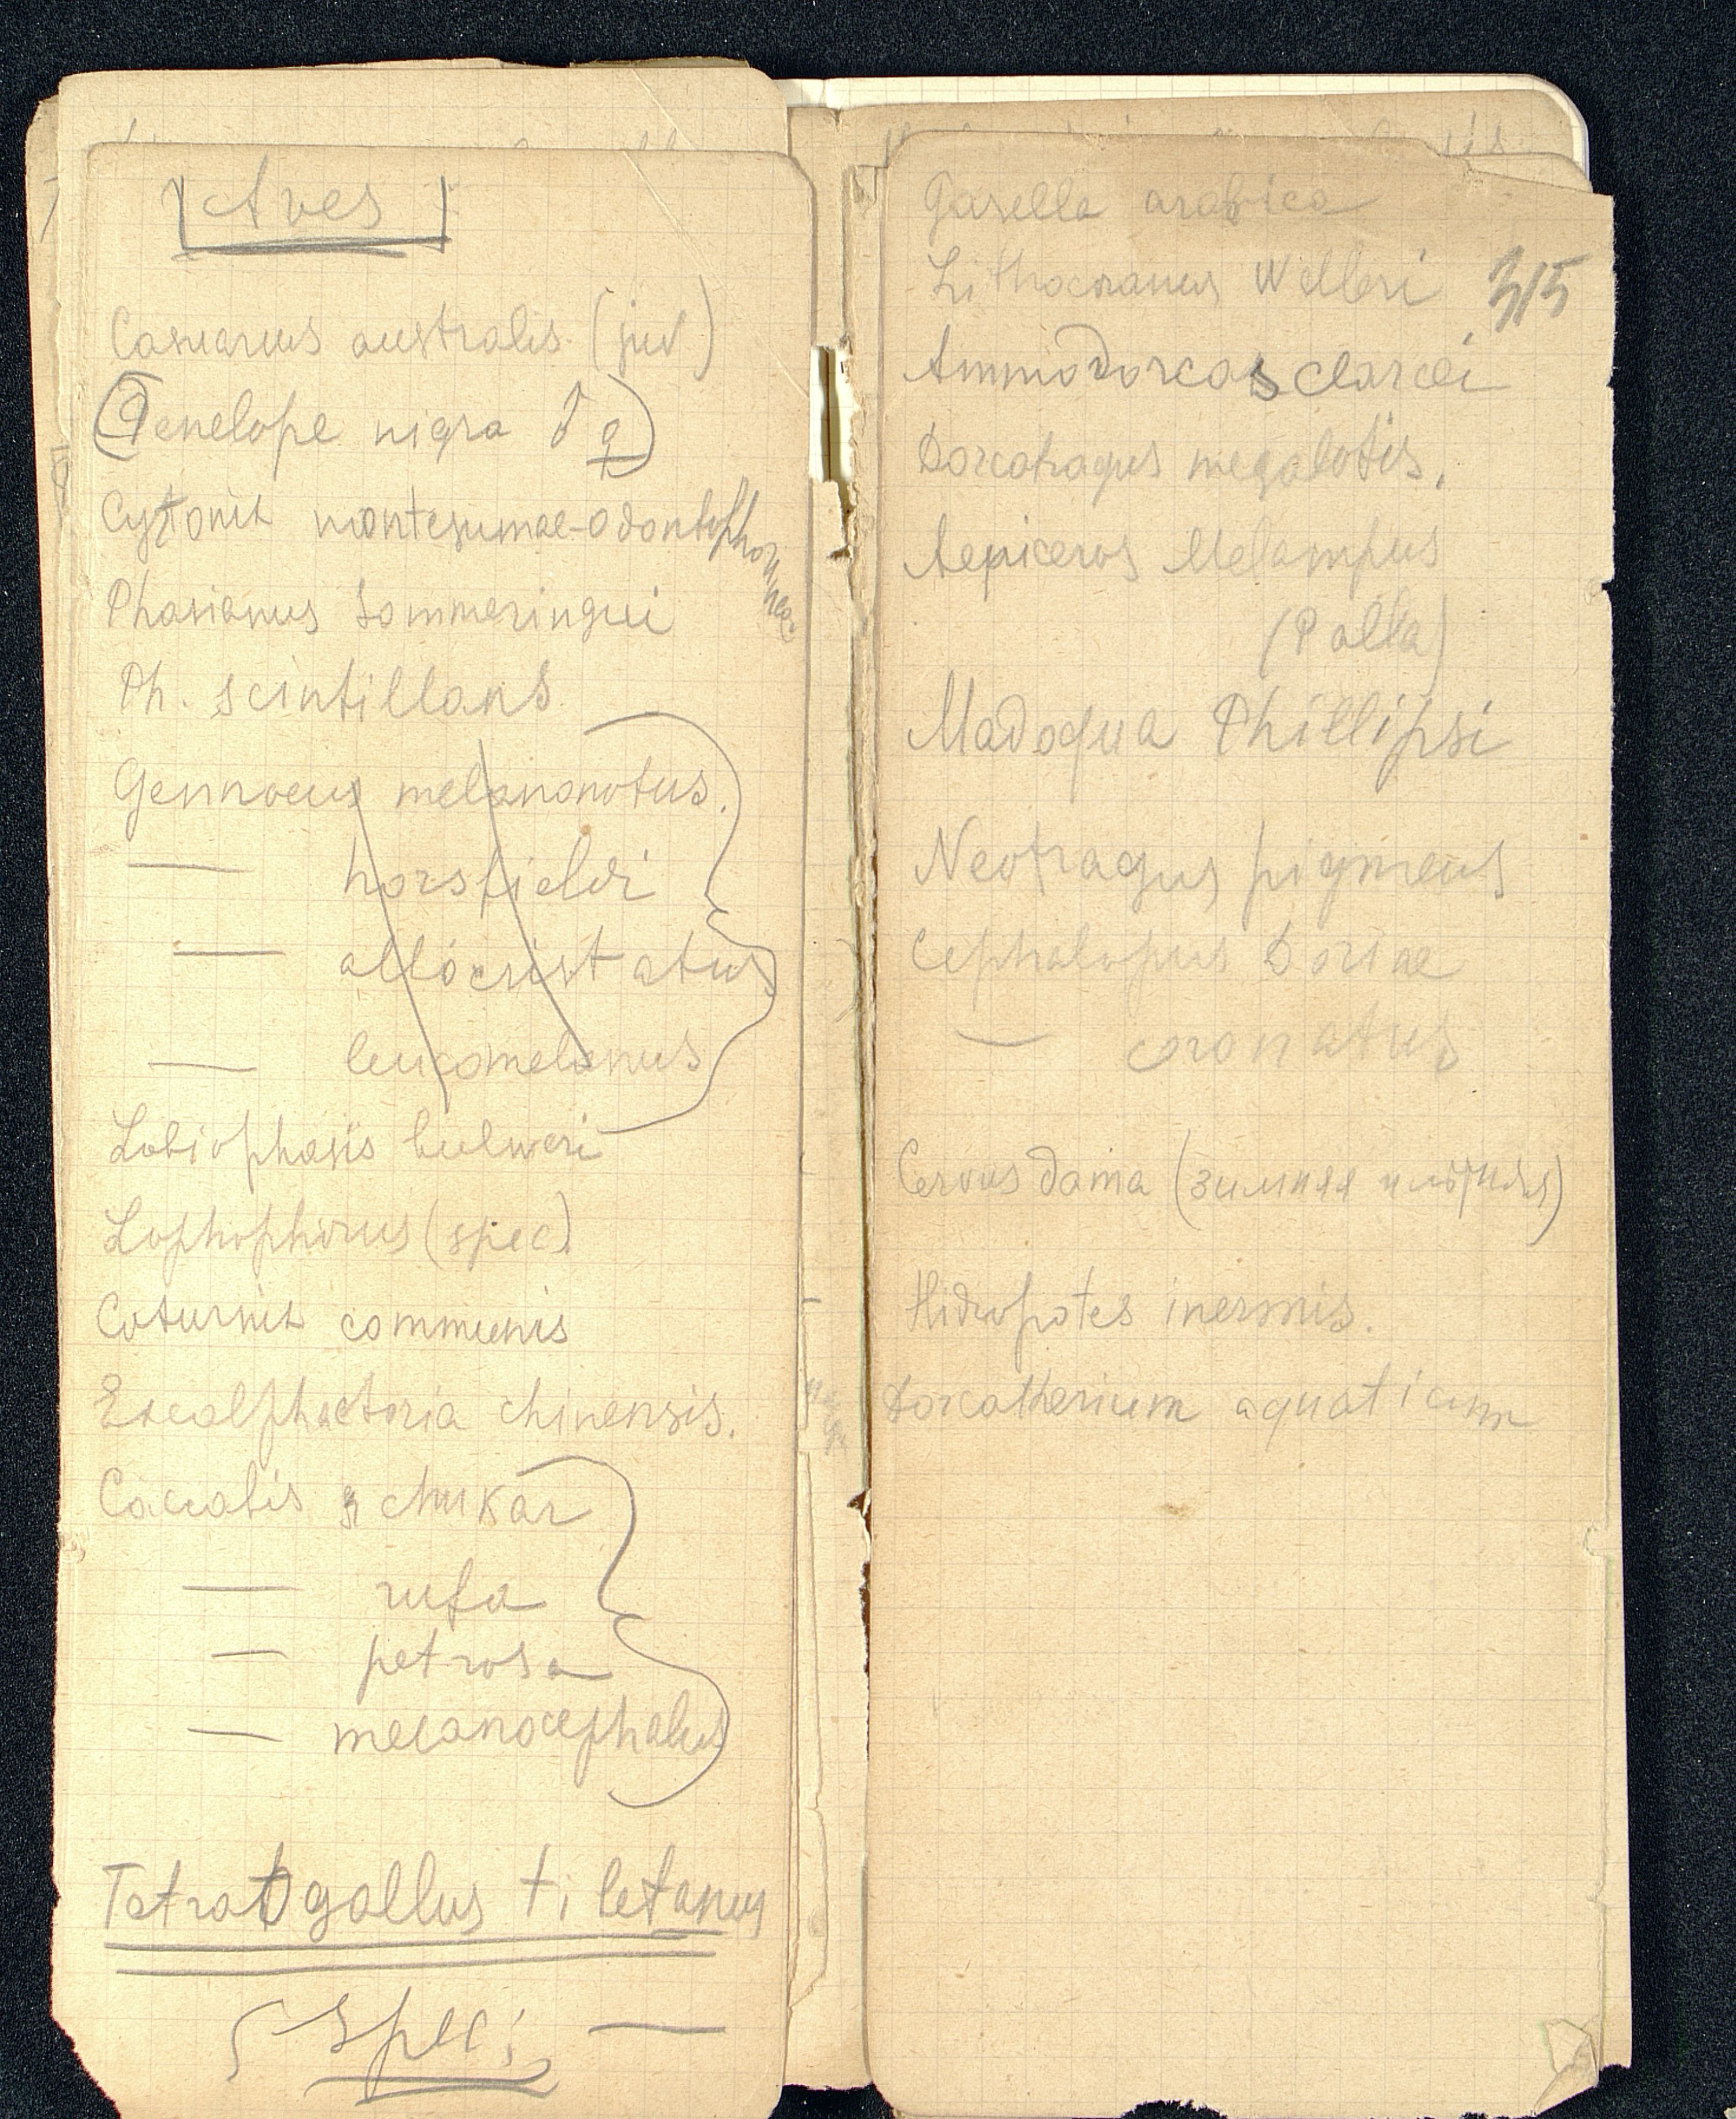 Aves
Casuarus australis (juv.)
(Penelope nigra ♂ ♀)
Cyrtonix montezumae-odontophorineae
Phasianus Sommeringii
Ph. scintillans
Gennoeus melanonotus.
— horsfieldi
— albocristatus
— leucomelanus
Lobiophasis bulweri
Lophophorus (spec)
Coturnix communis
Excalphactoria chinensis.
Caccabis chukar
— rufa
— petrosa
— melanocephalus
Tetraogallus tibetanus
spec. —
Gasella arabica
Lithocranus Welleri
315
Ammodorcas clarcei
Dorcatragus megalotis.
Aepiceros Melampus
(Palla)
Madoqua Phillipsi
Neotragus pigmeus
Cephalopus Doriae
— coronatus
Cervus dama (зимняя
Hidropotes inermis.
Dorcatherium aquaticum